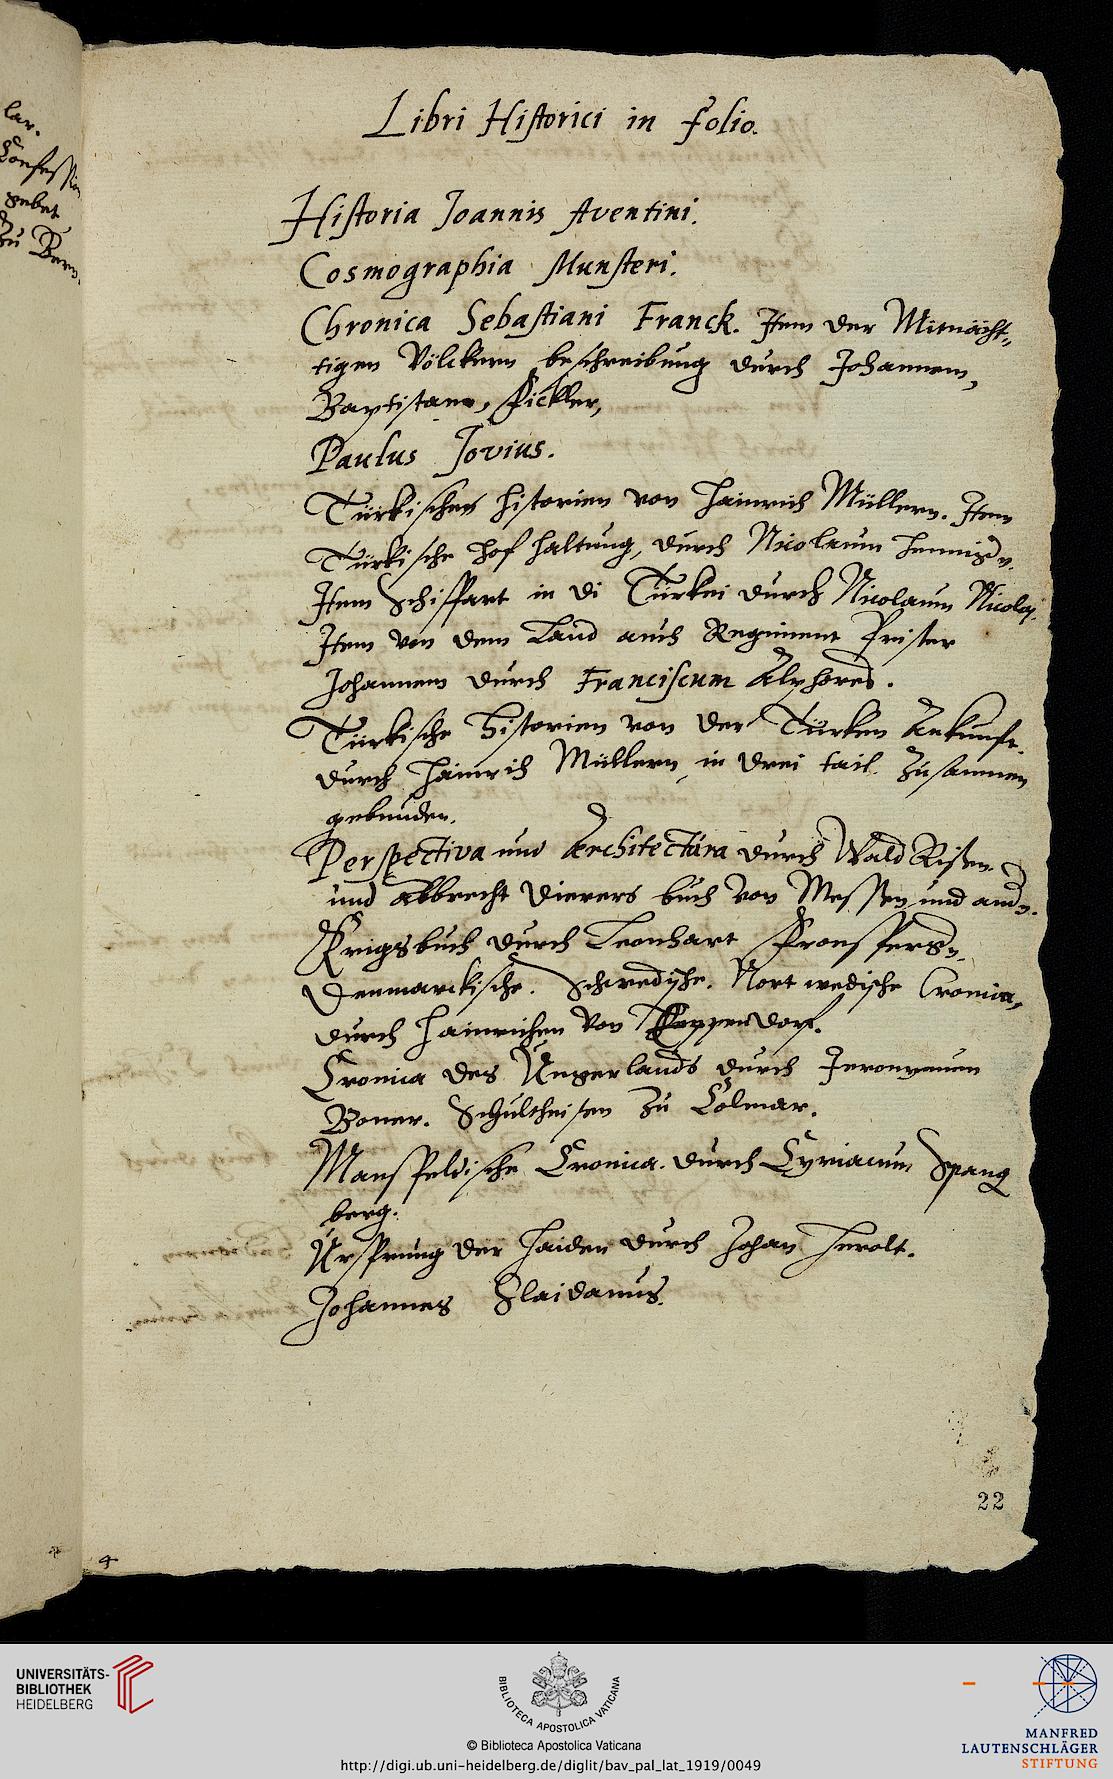 lar.
Confession
gebet
zu Bern.
Libri Historici in Folio.
Historia Joannis Aventini.
Cosmographia Munsteri.
Chronica Sebastiani Franck. Item der Mitnächt-
tigen Völckern beschreibung durch Johannem
Baptistam Fickler,
Paulus Jovius.
Türkischen historien von Hainrich Müllern. Item
Türkische hof haltung, durch Nicolaum
Item Schiffart in di Türkei durch Nicolaum Nicolaj.
Item von dem Land auch Regiment Prister
Johannem durch Franciscum
Türkische historien von der Türken Ankunft.
durch Hainrich Müllern in drei tail zusamen
gebunden.
Perspectiva und Architectura durch Wald Rißen.
und Albrecht Dierers buch von Messen und
Krigsbuch durch Leonhart
Denmarckische. Schwedische. Nortwedische Cronica,
durch Hainrichen von Eppendorf.
Cronica des Ungerlands durch Jeronymum
Boner. Schultheisen zu Colmar.
Mansfeldische Cronica durch Cyriacum Spang
berg.
Ursprung der Haiden durch Johan Herolt.
Johannes Slaidanus.
22
4
UNIVERSITÄTS-
BIBLIOTHEK
HEIDELBERG
BIBLIOTECA APOSTOLICA VATICANA
© Biblioteca Apostolica Vaticana
http://digi.ub.uni-heidelberg.de/diglit/bav_pal_lat_1919/0049
MANFRED
LAUTENSCHLÄGER
STIFTUNG